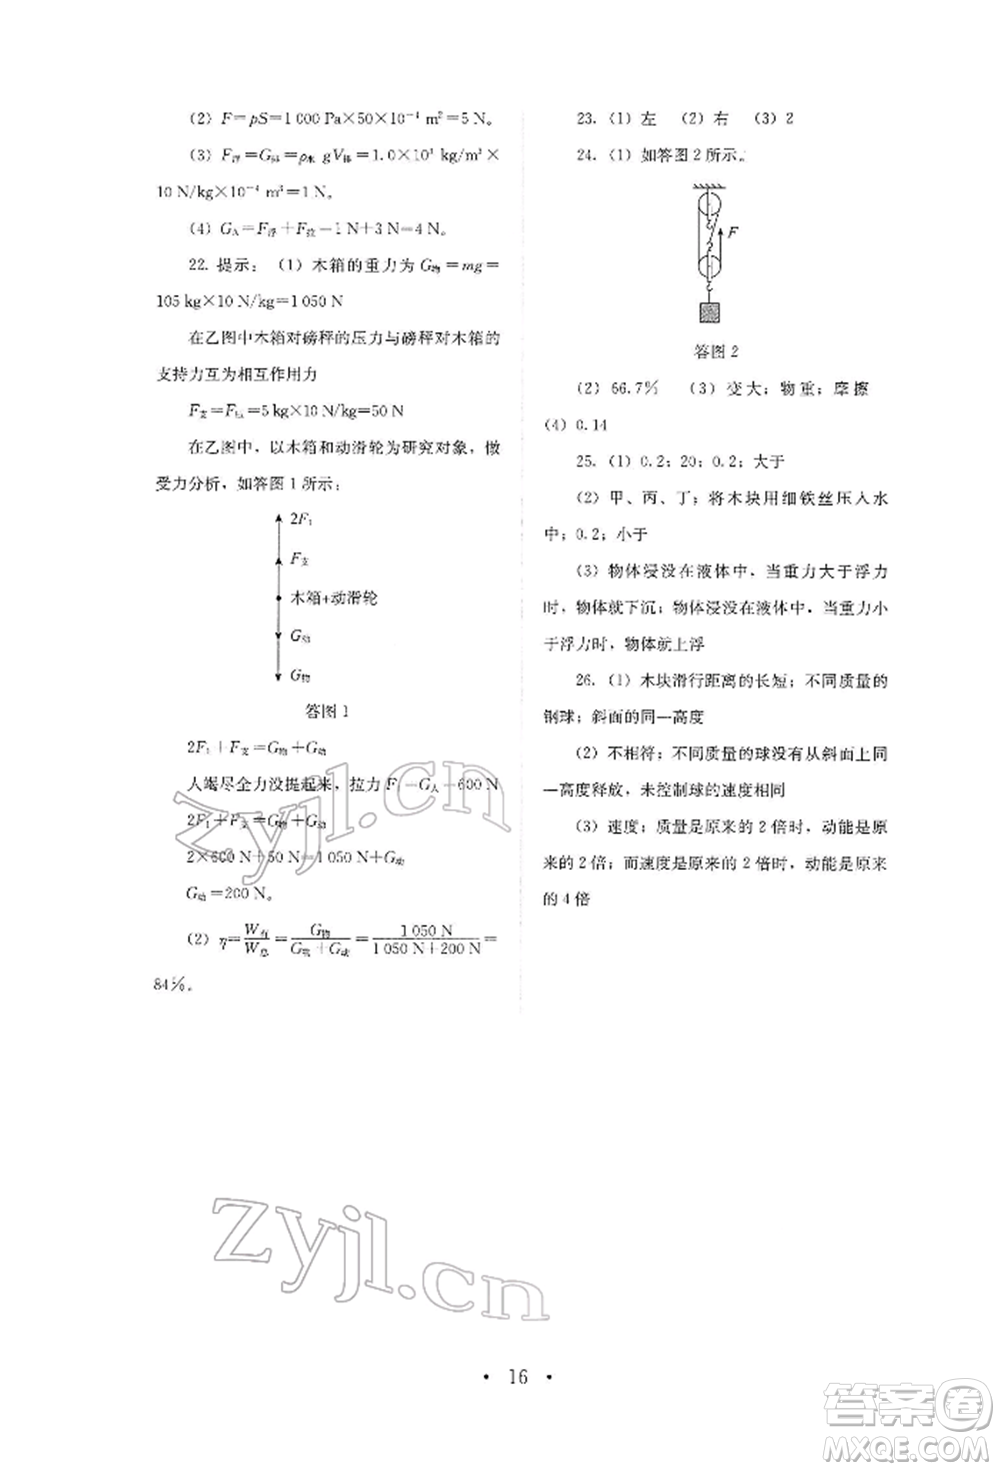 (2) F=pS=1 000 Pa×50×10⁻⁴ m²=5 N。
(3) F浮=G排=ρ水 gV排=1.0×10³ kg/m³×
10 N/kg×10⁻⁴ m³=1 N。
(4) G_A=F浮+F拉=1 N+3 N=4 N。
22. 提示：(1) 木箱的重力为 G物=mg=
105 kg×10 N/kg=1 050 N
在乙图中木箱对磅秤的压力与磅秤对木箱的
支持力互为相互作用力
F支=F压=5 kg×10 N/kg=50 N
在乙图中，以木箱和动滑轮为研究对象，做
受力分析，如答图 1 所示：
2F₁
F支
木箱+动滑轮
G动
G物
答图 1
2F₁+F支=G物+G动
人竭尽全力没提起来，拉力 F₁=G人=600 N
2F₁+F支=G物+G动
2×600 N+50 N=1 050 N+G动
G动=200 N。
(2) η=W有/W总=G物/(G物+G动)=1 050 N/(1 050 N+200 N)=
84%。
23. (1) 左 (2) 右 (3) 2
24. (1) 如答图 2 所示。
F
答图 2
(2) 66.7% (3) 变大；物重；摩擦
(4) 0.14
25. (1) 0.2；20；0.2；大于
(2) 甲、丙、丁；将木块用细铁丝压入水
中；0.2；小于
(3) 物体浸没在液体中，当重力大于浮力
时，物体就下沉；物体浸没在液体中，当重力小
于浮力时，物体就上浮
26. (1) 木块滑行距离的长短；不同质量的
钢球；斜面的同一高度
(2) 不相符；不同质量的球没有从斜面上同
一高度释放，未控制球的速度相同
(3) 速度；质量是原来的 2 倍时，动能是原
来的 2 倍；而速度是原来的 2 倍时，动能是原来
的 4 倍
zyjl.cn
zyjl.cn
• 16 •
答案圈
MXQE.COM